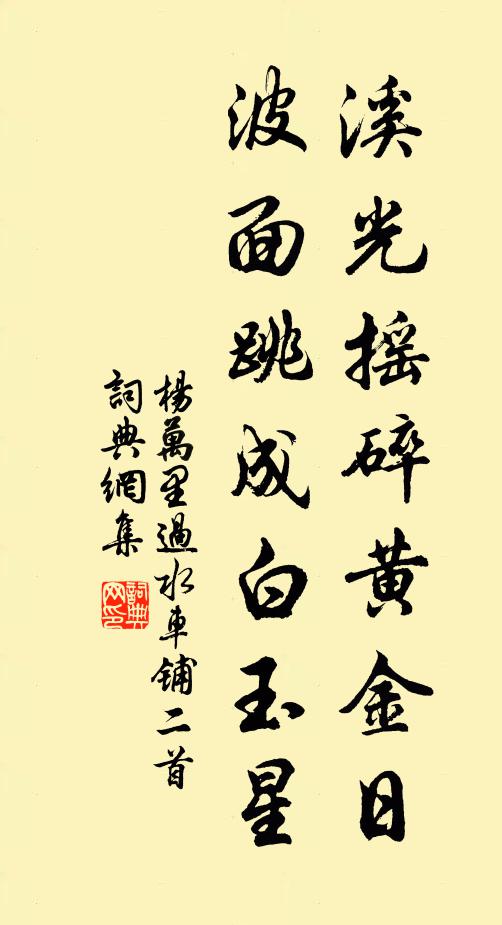 溪光摇碎黄金日
波面跳成白玉星
楊萬里過水車鋪二首
詞典網集
詞典網印